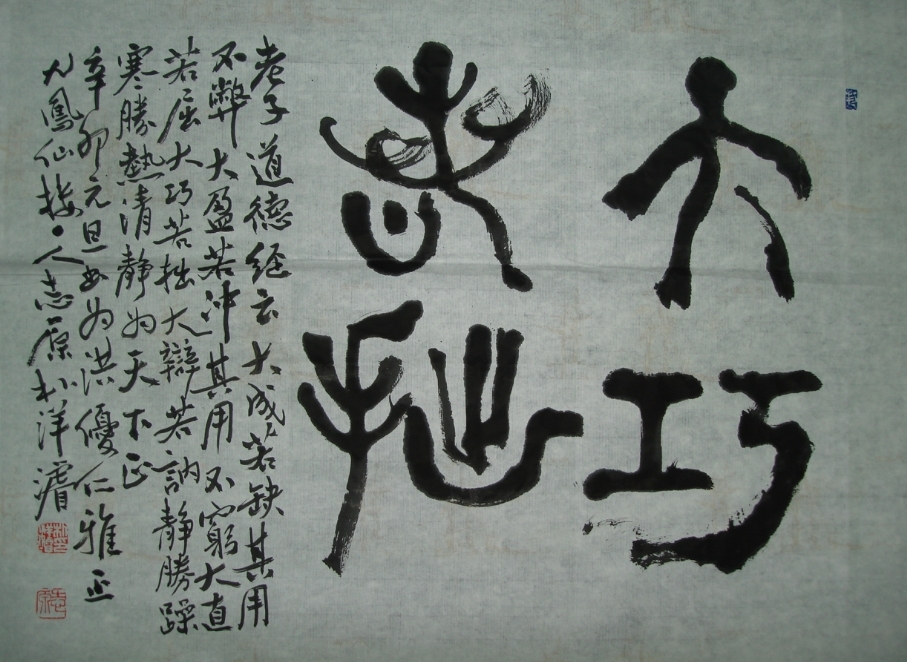 大巧
若拙
老子道德经云大成若缺其用
不弊大盈若冲其用不穷大直
若屈大巧若拙大辩若訥静勝躁
寒勝熱清静为天下正
辛卯元旦书为洪優仁雅正
九鳳仙楼人志原於洋濱